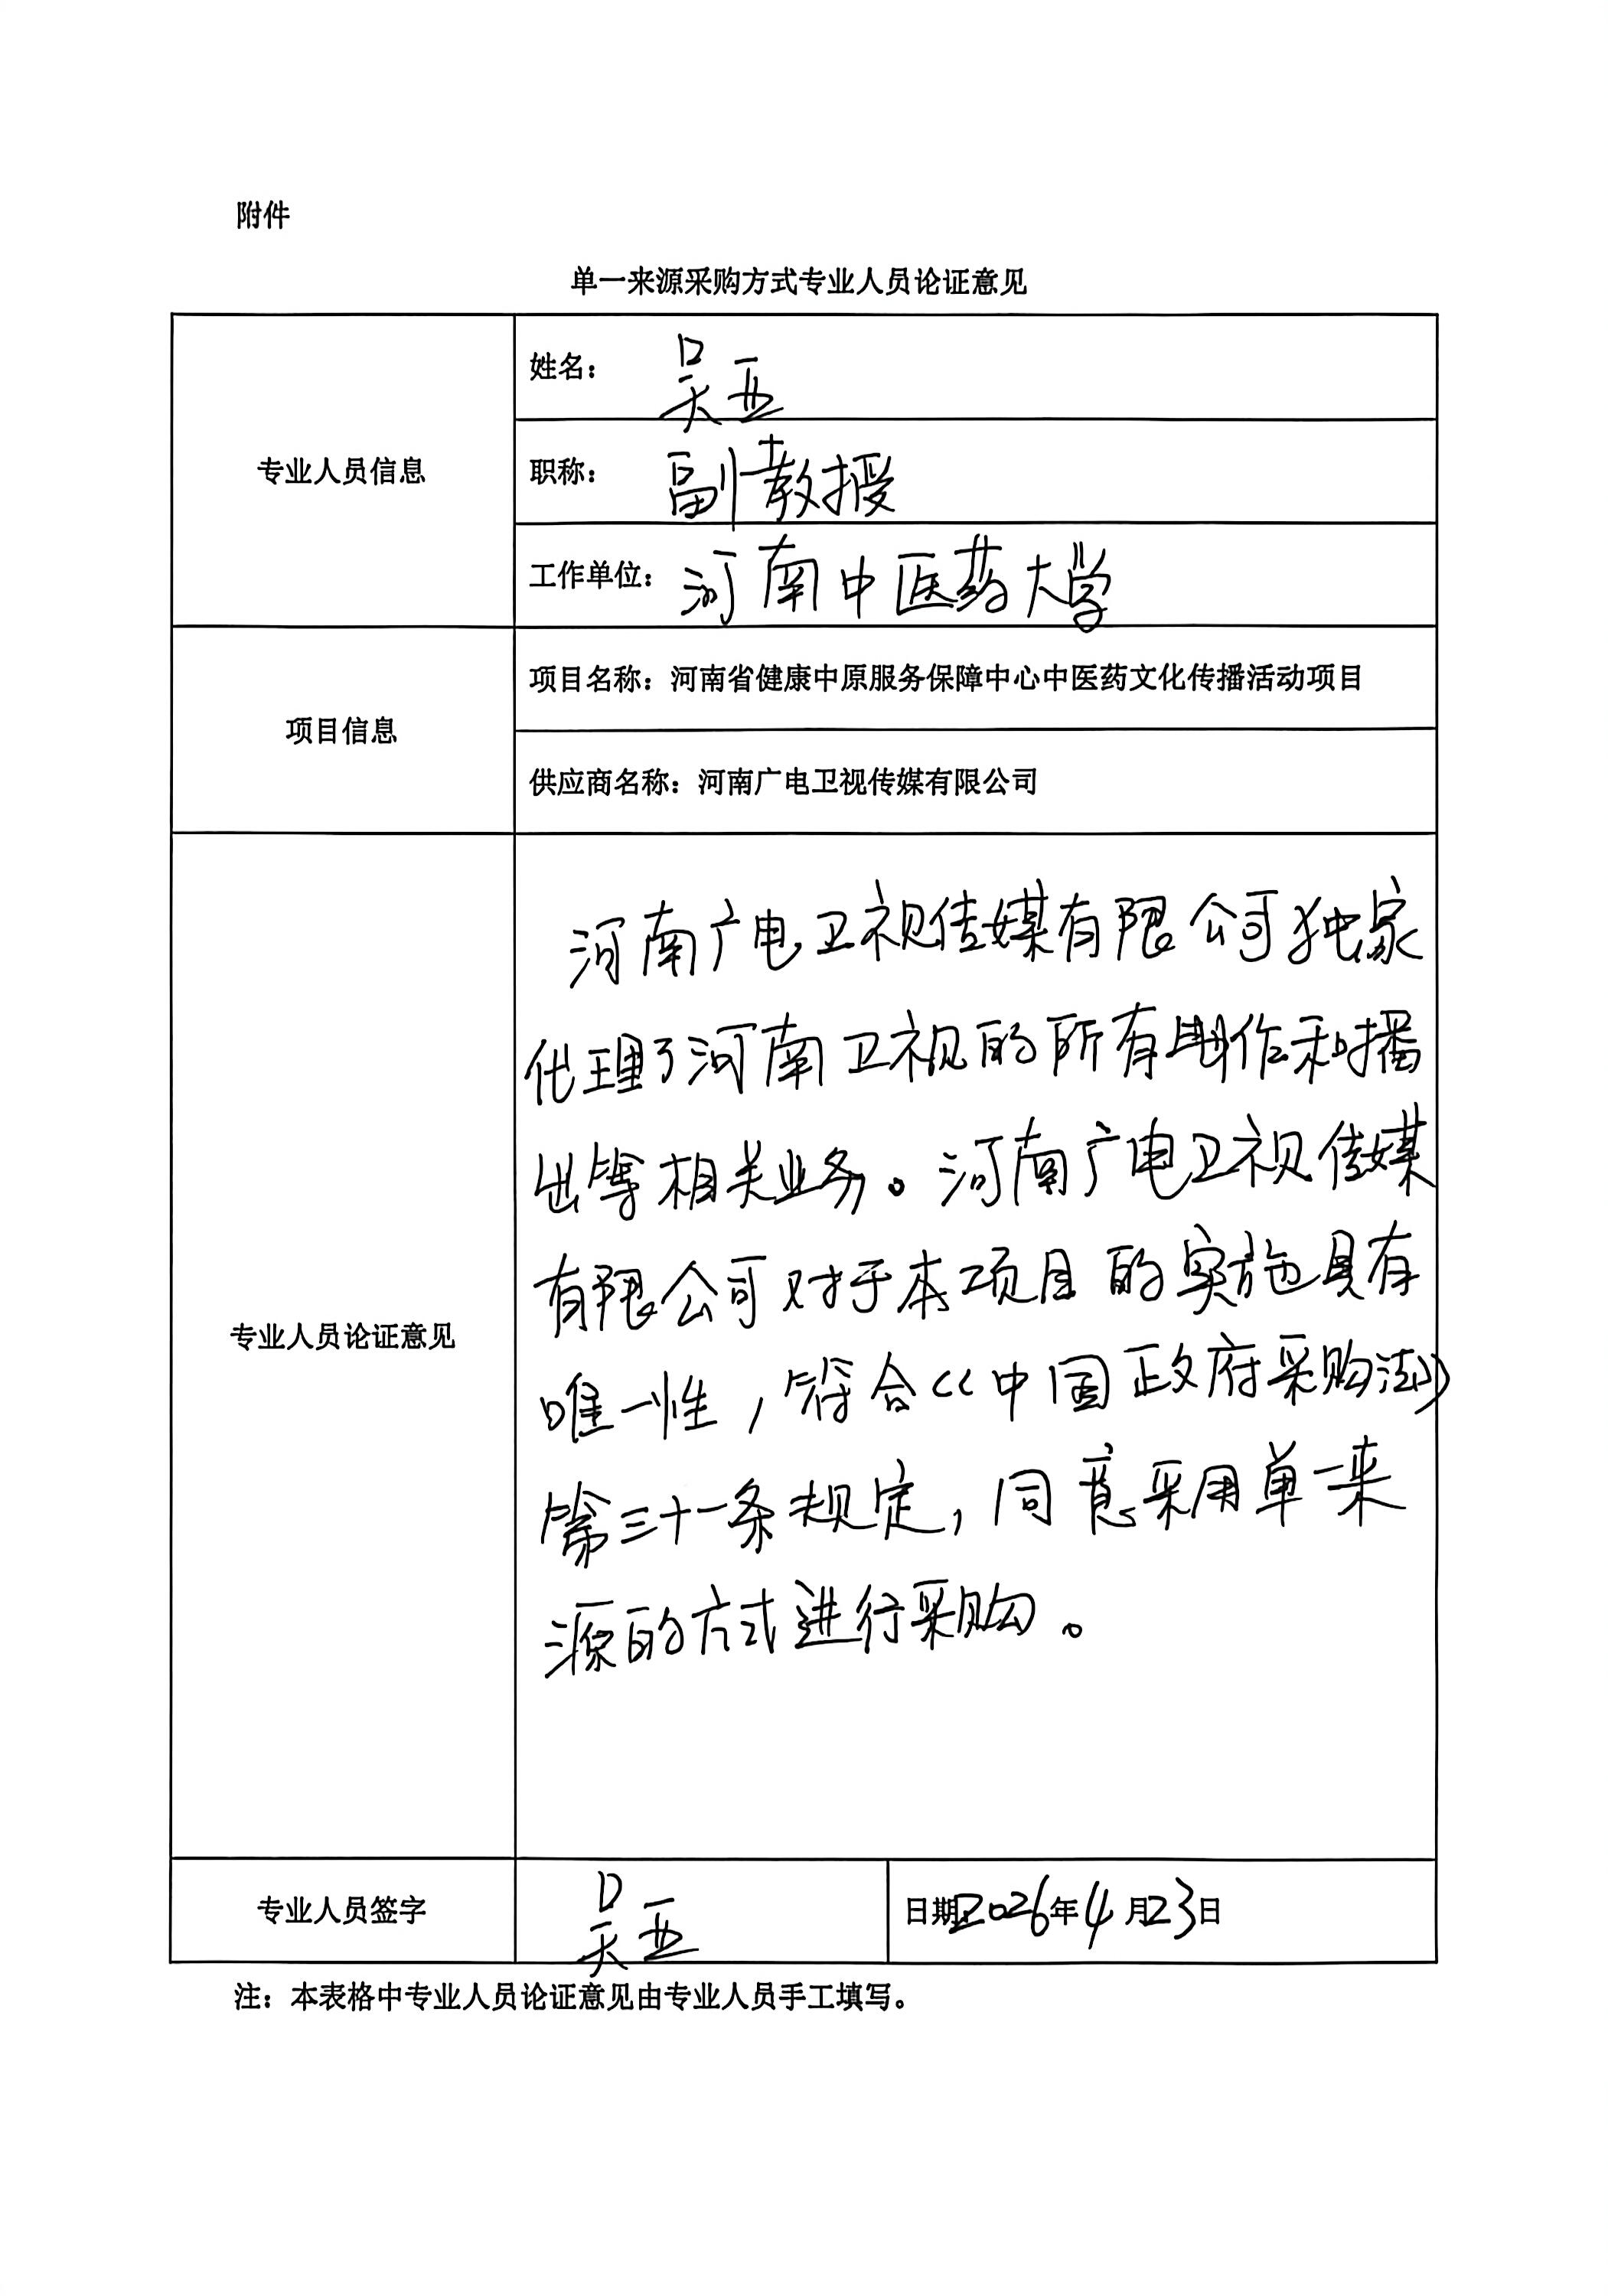 附件
单一来源采购方式专业人员论证意见
专业人员信息
姓名：吴亚
职称：副教授
工作单位：河南中医药大学
项目信息
项目名称：河南省健康中原服务保障中心中医药文化传播活动项目
供应商名称：河南广电卫视传媒有限公司
专业人员论证意见
河南广电卫视传媒有限公司独家
代理了河南卫视的所有制作和播
出等相关业务。河南广电卫视传媒
有限公司对于本项目的实施具有
唯一性，符合《中国政府采购法》
第三十一条规定，同意采用单一来
源的方式进行采购。
专业人员签字
吴亚
日期：2026年4月23日
注：本表格中专业人员论证意见由专业人员手工填写。